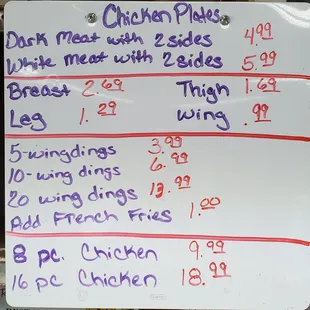 Chicken Plates
Dark Meat with 2 sides 4.99
White meat with 2 sides 5.99
Breast 2.69 Thigh 1.69
Leg 1.29 Wing .99
5-wingdings 3.99
10-wing dings 6.99
20 wing dings 13.99
Add French Fries 1.00
8 pc. Chicken 9.99
16 pc Chicken 18.99